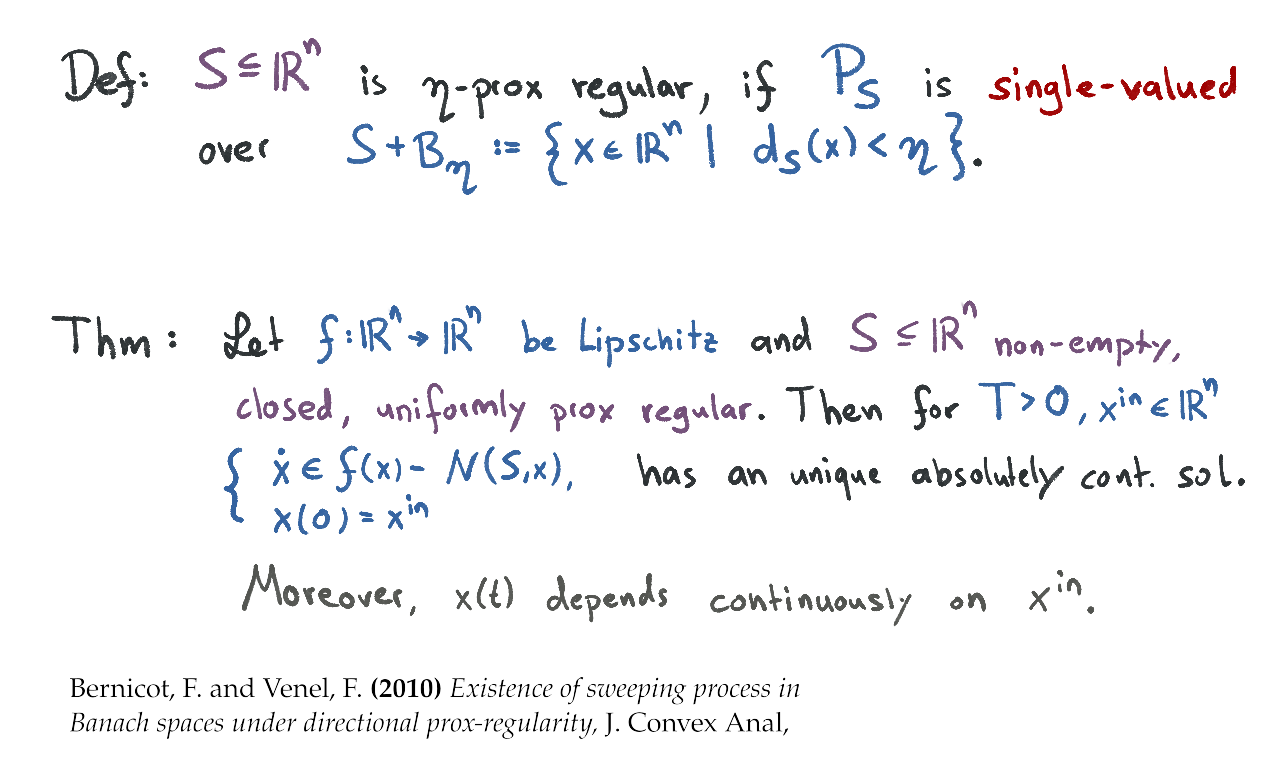 Def: S ⊆ ℝⁿ is η-prox regular, if P_S is single-valued
over S + B_η := {x ∈ ℝⁿ | d_S(x) < η}.
Thm: Let f: ℝⁿ → ℝⁿ be Lipschitz and S ⊆ ℝⁿ non-empty,
closed, uniformly prox regular. Then for T > 0, xⁱⁿ ∈ ℝⁿ
{ ẋ ∈ f(x) - N(S,x), has an unique absolutely cont. sol.
x(0) = xⁱⁿ
Moreover, x(t) depends continuously on xⁱⁿ.
Bernicot, F. and Venel, F. (2010) Existence of sweeping process in
Banach spaces under directional prox-regularity, J. Convex Anal,